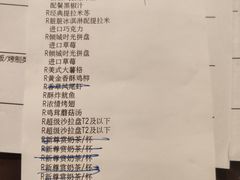 配餐黑椒汁
R经典提拉米苏
R脏脏冰淇淋配提拉米
进口巧克力
R倾城时光拼盘
进口草莓
R倾城时光拼盘
进口草莓
R美式大薯格
R黄金香酥鸡柳
R香草凤尾虾
R酥炸鱿鱼
R浓情烤翅
R鸡茸蘑菇汤
R超级沙拉盘T2及以下
R超级沙拉盘T2及以下
R新尊赏奶茶/杯
R新尊赏奶茶/杯
R新尊赏奶茶/杯
R新尊赏奶茶/杯
R新尊赏奶茶/杯